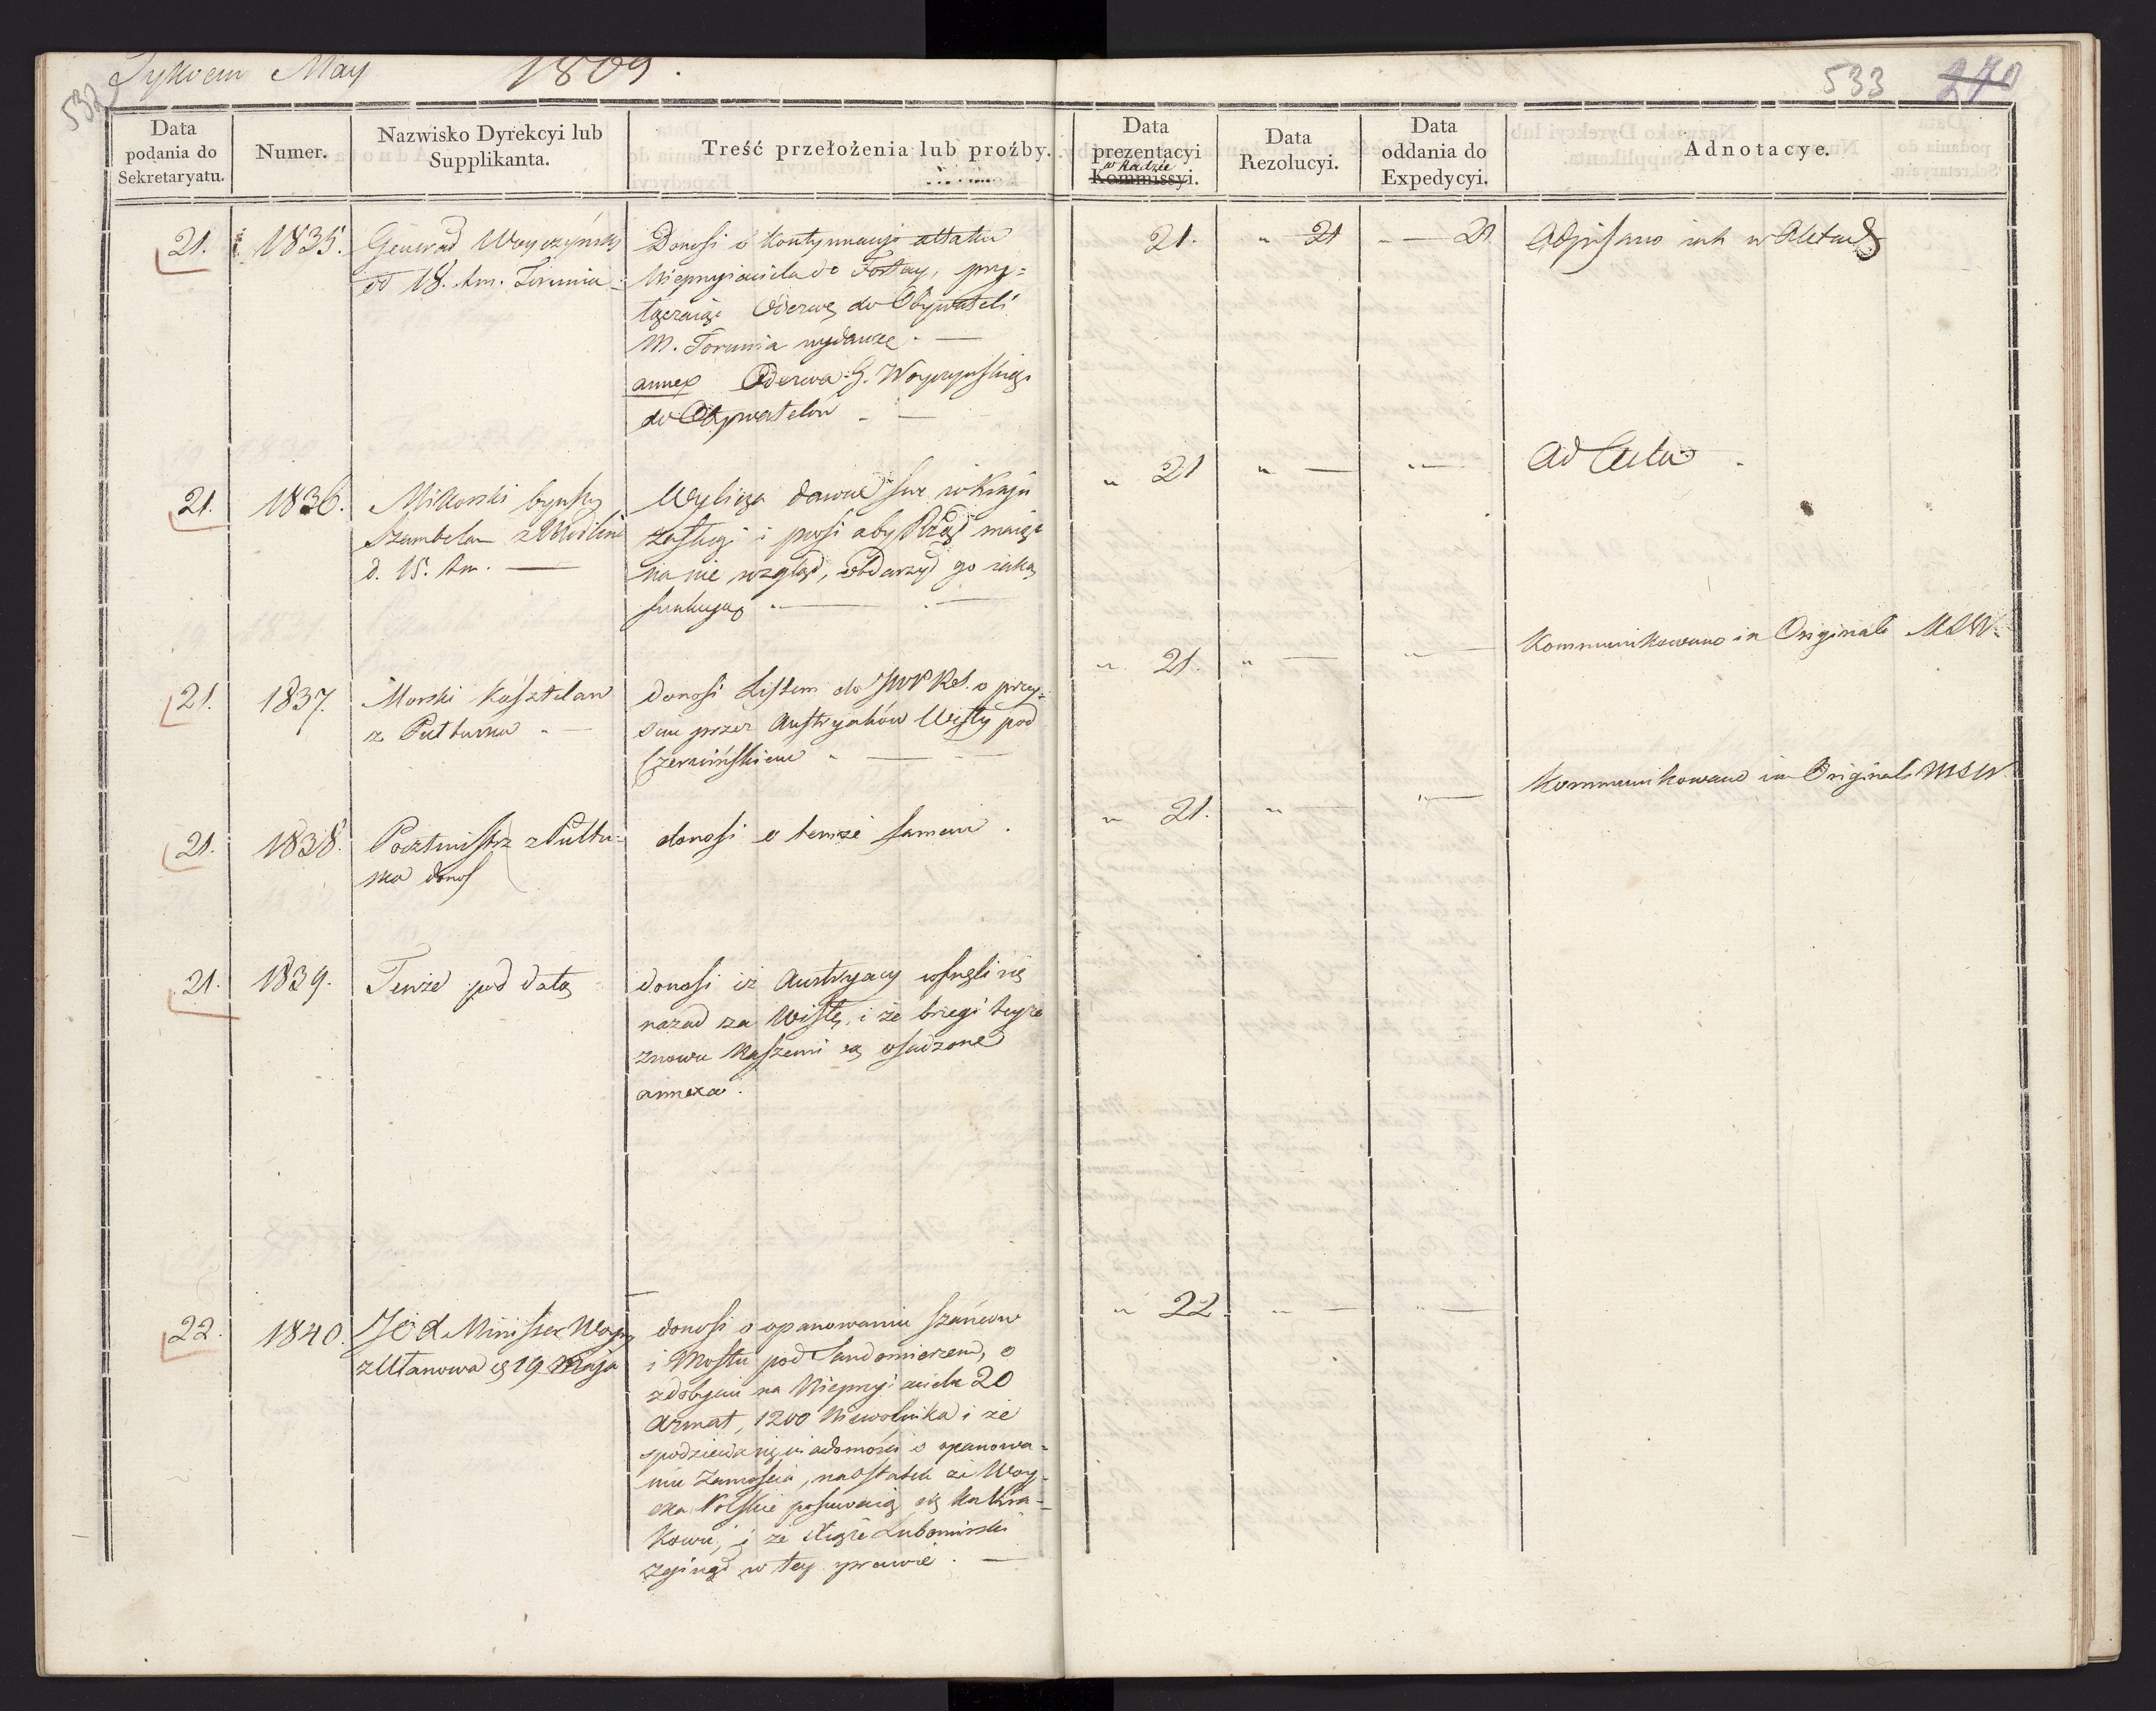 Tykocin May 1809.
532
533 270
Data podania do Sekretaryatu.
Numer.
Nazwisko Dyrekcyi lub Supplikanta.
Treść przełożenia lub proźby.
Data prezentacyi w Radzie Kommissyi.
Data Rezolucyi.
Data oddania do Expedycyi.
Adnotacye.
21. 1835. Generał Woyczyński
od 18. t.m. Torunia
Donosi o kontynuacyi attaku
Nieprzyiaciela do Fortecy, przy=
łączaiąc Odezwę do Obywateli
M. Torunia wydaną. —
annex Odezwa G. Woyczyńskiego
do Obywatelów —
21. " 21 " — 21 Odpisano iak w Aktach
21. 1836. Mikorski bywszy
Szambelan
d. 15. t.m. —
Wylicza dawne swe w Kraju
zasługi i prosi aby Rząd maiąc
na nie wzgląd, obdarzył go iaką
funkcyą. —
" 21 " — " — Ad Acta.
21. 1837. Morski Kasztelan
z Pułtuska. —
donosi Listem do JWP Rs. o przey=
ściu przez Austryaków Wisły pod
Czerwińskiem. —
" 21. " — " — Kommunikowano in Originali MSW.
21. 1838. Pocztmistrz z Pułtu=
ska donosi
donosi o temże samem.
" 21. " — " — Kommunikowano in Originali MSW.
21. 1839. Tenże pod datą
donosi iż Austryacy cofnęli się
nazad za Wisłę, i że brzegi teyże
znowu Naszemi są osadzone
annexa.
22. 1840. JO X Minister Woyny
z Ulanowa d 19 Maja
donosi o opanowaniu szańców
i Mostu pod Sandomierzem, o
zdobyciu na Nieprzyiacielu 20
Armat, 1200 Niewolnika i że
spodziewa się wiadomości o opanowa=
niu Zamościa, naostatek że Woy=
ska Polskie posuwaią się ku Kra=
kowu, i że Xiąże Lubomirski
zginął w tey sprawie. —
" 22. " — " —